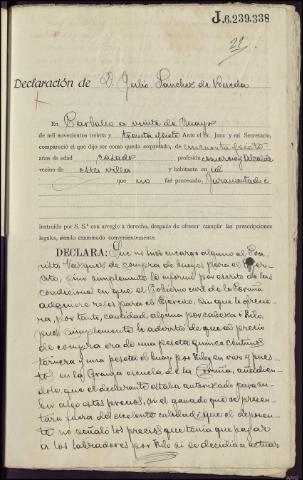 J.6.239.338
29.
Declaración de D. Julio Sanchez de
En Carballo a veinte de Mayo
de mil novecientos treinta y treinta y siete Ante el Sr. Juez y mi Secretario,
compareció el que dijo ser como queda expresado, de cincuenta y cuatro
años de edad casado profesión comercio y Alcalde
vecino de esta villa y habitante en id
que no fué procesado, Juramentado é
instruído por S. S.ª con arreglo a derecho, después de ofrecer cumplir las prescripciones
legales, siendo examinado convenientemente
DECLARA: Que no hizo encargo alguno al
Vazquez de compra de bueyes para el
sino simplemente le informó por escrito de las
condiciones en que el Gobierno civil de la Coruña
adquiere reses para el Ejercito, sin que le ofrecie-
ra, por tanto, cantidad alguna por cabeza o kilo,
pues simplemente le advertia de que el precio
de compra era de una peseta quince centimos
ternera y una peseta el buey por kilo en vivo y pues-
to en la Granja escuela de la Coruña, añadien-
dole, que el declarante estaba autorizado para su-
bir algo estos precios, si el ganado que se presen-
tara fuera de excelente calidad; que el deponen-
te no señaló los precios que tenia que pagar
a los labradores por kilo si se decidia a actuar